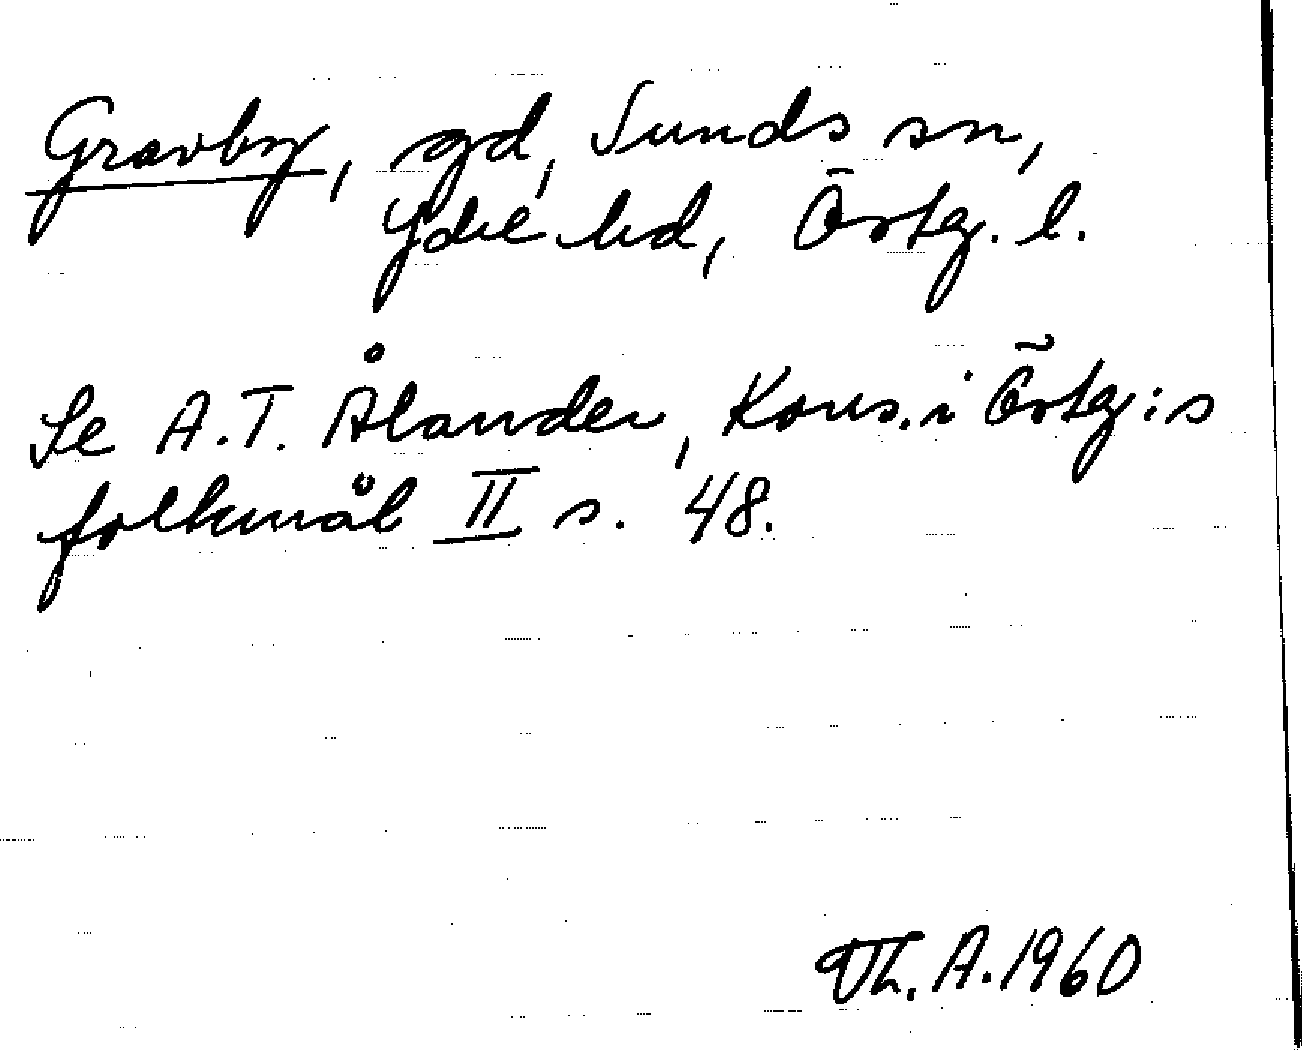 Gravby, gd, Sunds sn,
Ydre hd, Östg. l.
Se A.T. Ålander, Kons. i Östg:s
folkmål II s. 48.
Th. A. 1960